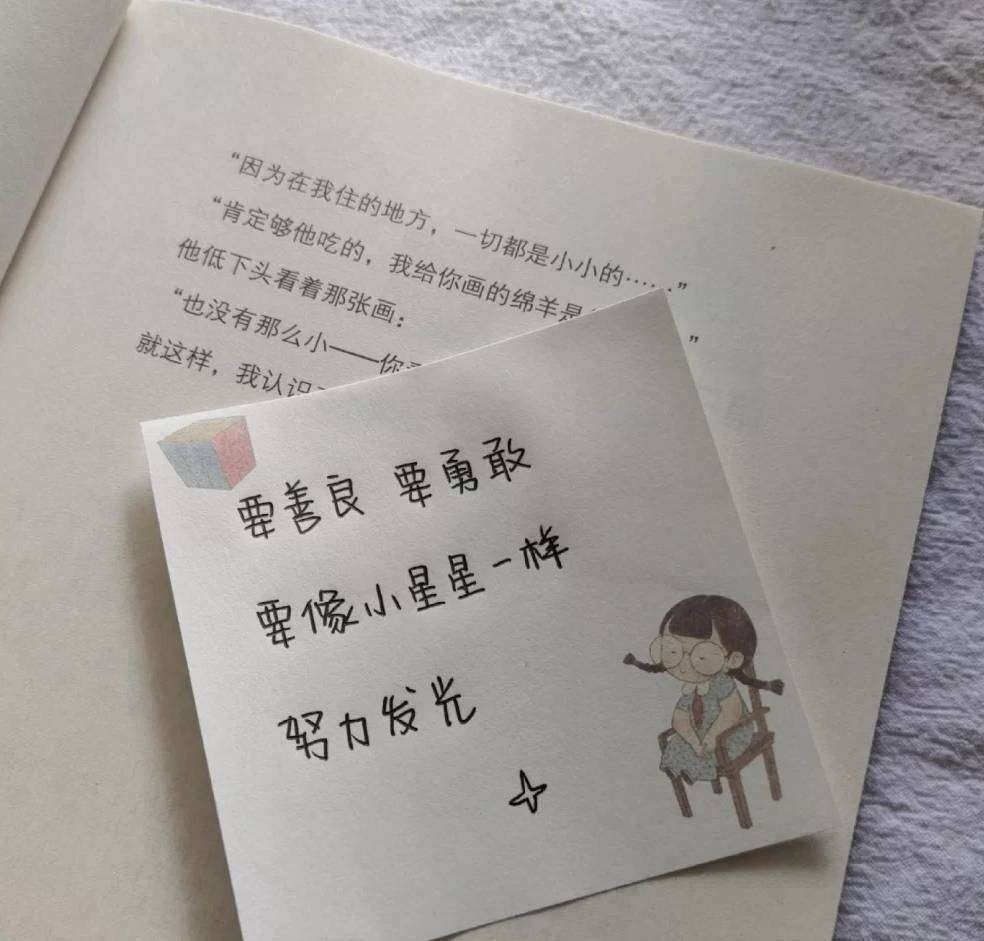 “因为在我住的地方，一切都是小小的……”
“肯定够他吃的，我给你画的绵羊是
”
他低下头看着那张画：
“也没有那么小——你
就这样，我认识
要善良 要勇敢
要像小星星一样
努力发光